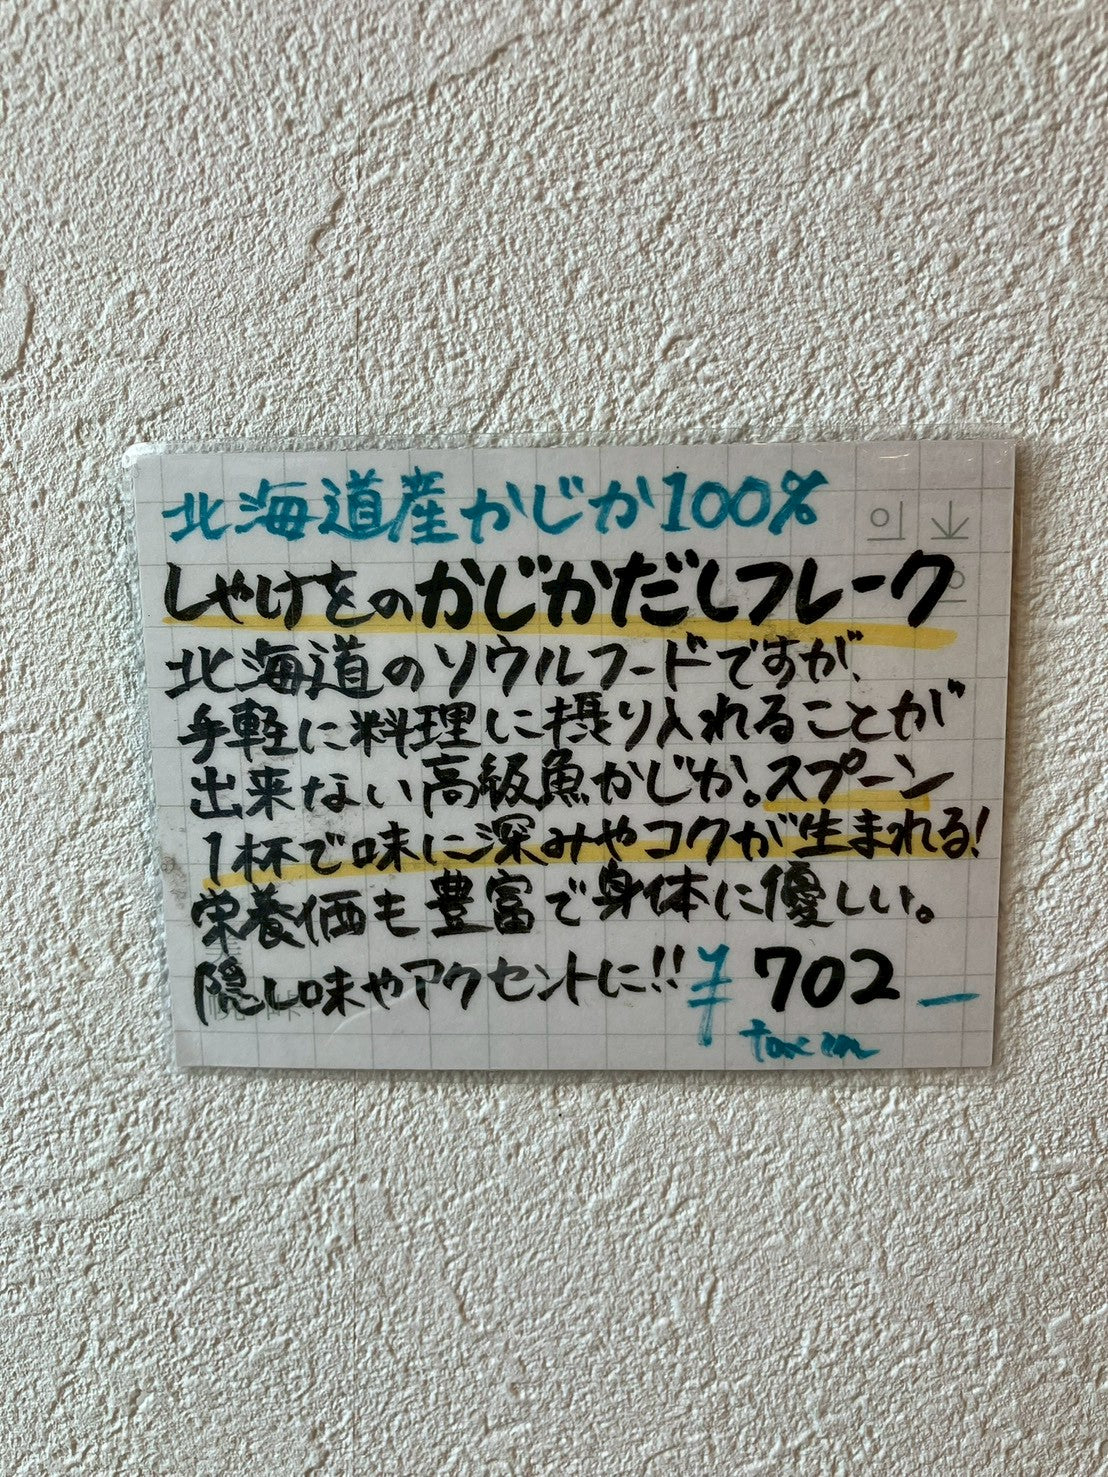 北海道産かじか100%
しゃけをのかじかだしフレーク
北海道のソウルフードですが、
手軽に料理に摂り入れることが
出来ない高級魚かじか。スプーン
1杯で味に深みやコクが生まれる!
栄養価も豊富で身体に優しい。
隠し味やアクセントに!! ¥702-
tax in